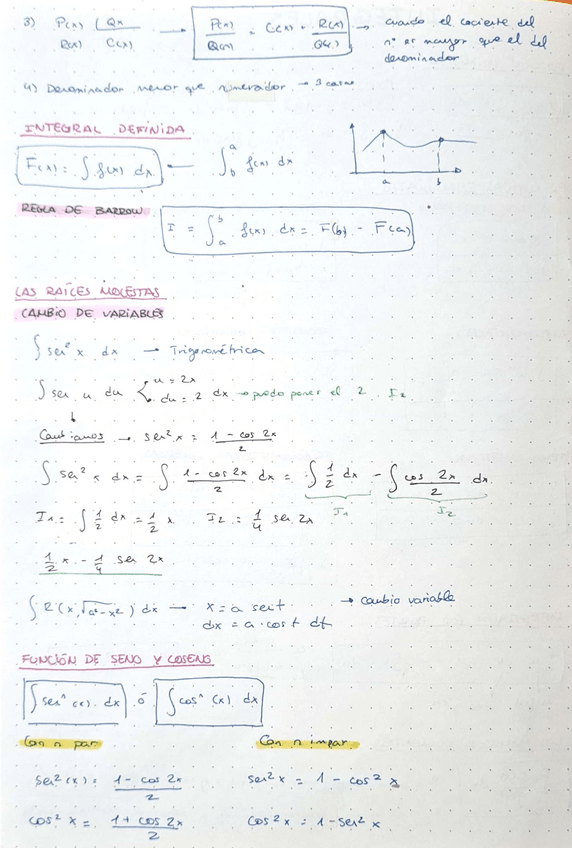 3) P(x) | Q(x) → P(x)/Q(x) = C(x) + R(x)/Q(x) → cuando el cociente del
R(x) C(x) nº es mayor que el del
denominador
4) Denominador menor que numerador → 3 casos
INTEGRAL DEFINIDA
F(x) = ∫ f(x) dx — ∫_b^a f(x) dx
a b
REGLA DE BARROW I = ∫_a^b f(x) dx = F(b) - F(a)
LAS RAÍCES MOLESTAS
CAMBIO DE VARIABLES
∫ sen² x dx → Trigonométrica
∫ sen u du u = 2x
du = 2 dx → puedo poner el 2 I₂
Cambiamos → sen² x = (1 - cos 2x)/2
∫ sen² x dx = ∫ (1 - cos 2x)/2 dx = ∫ 1/2 dx - ∫ cos 2x/2 dx
I₁ I₂
I₁ = ∫ 1/2 dx = 1/2 x I₂ = 1/4 sen 2x
1/2 x - 1/4 sen 2x
∫ R(x, √(a² - x²)) dx → x = a sent → cambio variable
dx = a · cost dt
FUNCIÓN DE SENO Y COSENO
∫ senⁿ (x) dx ó ∫ cosⁿ (x) dx
Con n par Con n impar
sen² (x) = (1 - cos 2x)/2 sen² x = 1 - cos² x
cos² x = (1 + cos 2x)/2 cos² x = 1 - sen² x